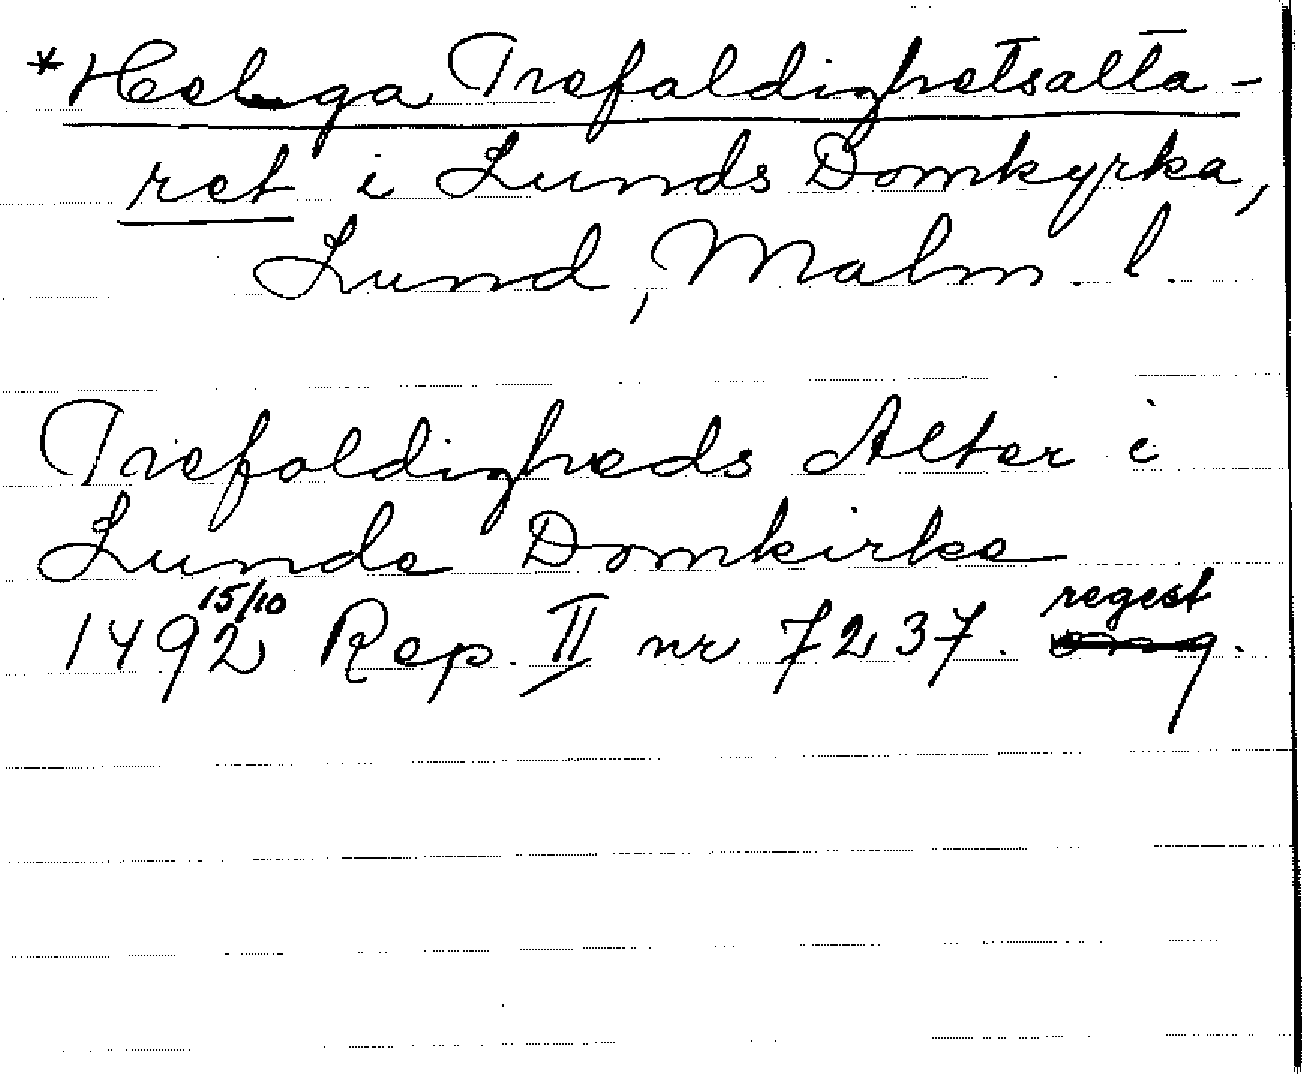 *Helga Trefaldighetsalta-
ret i Lunds Domkyrka,
Lund, Malm. l.
Trefoldigheds Alter i
Lunde Domkirke
1492 15/10 Rep. II nr 7237. regest